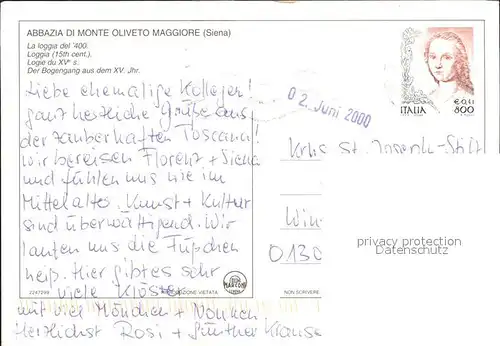 ABBAZIA DI MONTE OLIVETO MAGGIORE (Siena)
La loggia del '400.
Loggia (15th cent.).
Logie du XVe s.
Der Bogengang aus dem XV. Jhr.
Liebe ehemalige Kollegen!
ganz herzliche Grüße aus
der zauberhaften Toscana!
Wir bereisen Florenz + Siena
und fühlen uns wie im
Mittelalter. Kunst + Kultur
sind überwältigend. Wir
laufen uns die Füßchen
heiß. Hier gibt es sehr
viele Klöster
mit viel Mönchen + Nonnen.
Herzlichst Rosi + Günther Krause
2247299
RIPRODUZIONE VIETATA
MARCONI
NON SCRIVERE
02. Juni 2000
ITALIA
€ 0,41
800
St. Joseph-Stift
Win-
0130
privacy protection
Datenschutz